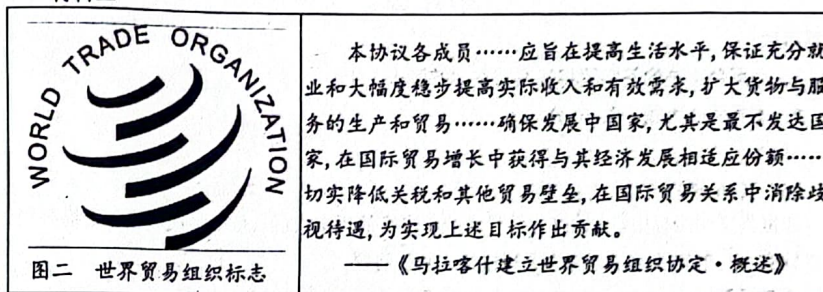 WORLD TRADE ORGANIZATION
图二 世界贸易组织标志
本协议各成员……应旨在提高生活水平,保证充分就
业和大幅度稳步提高实际收入和有效需求,扩大货物与服
务的生产和贸易……确保发展中国家,尤其是最不发达国
家,在国际贸易增长中获得与其经济发展相适应份额……
切实降低关税和其他贸易壁垒,在国际贸易关系中消除歧
视待遇,为实现上述目标作出贡献。
——《马拉喀什建立世界贸易组织协定·概述》